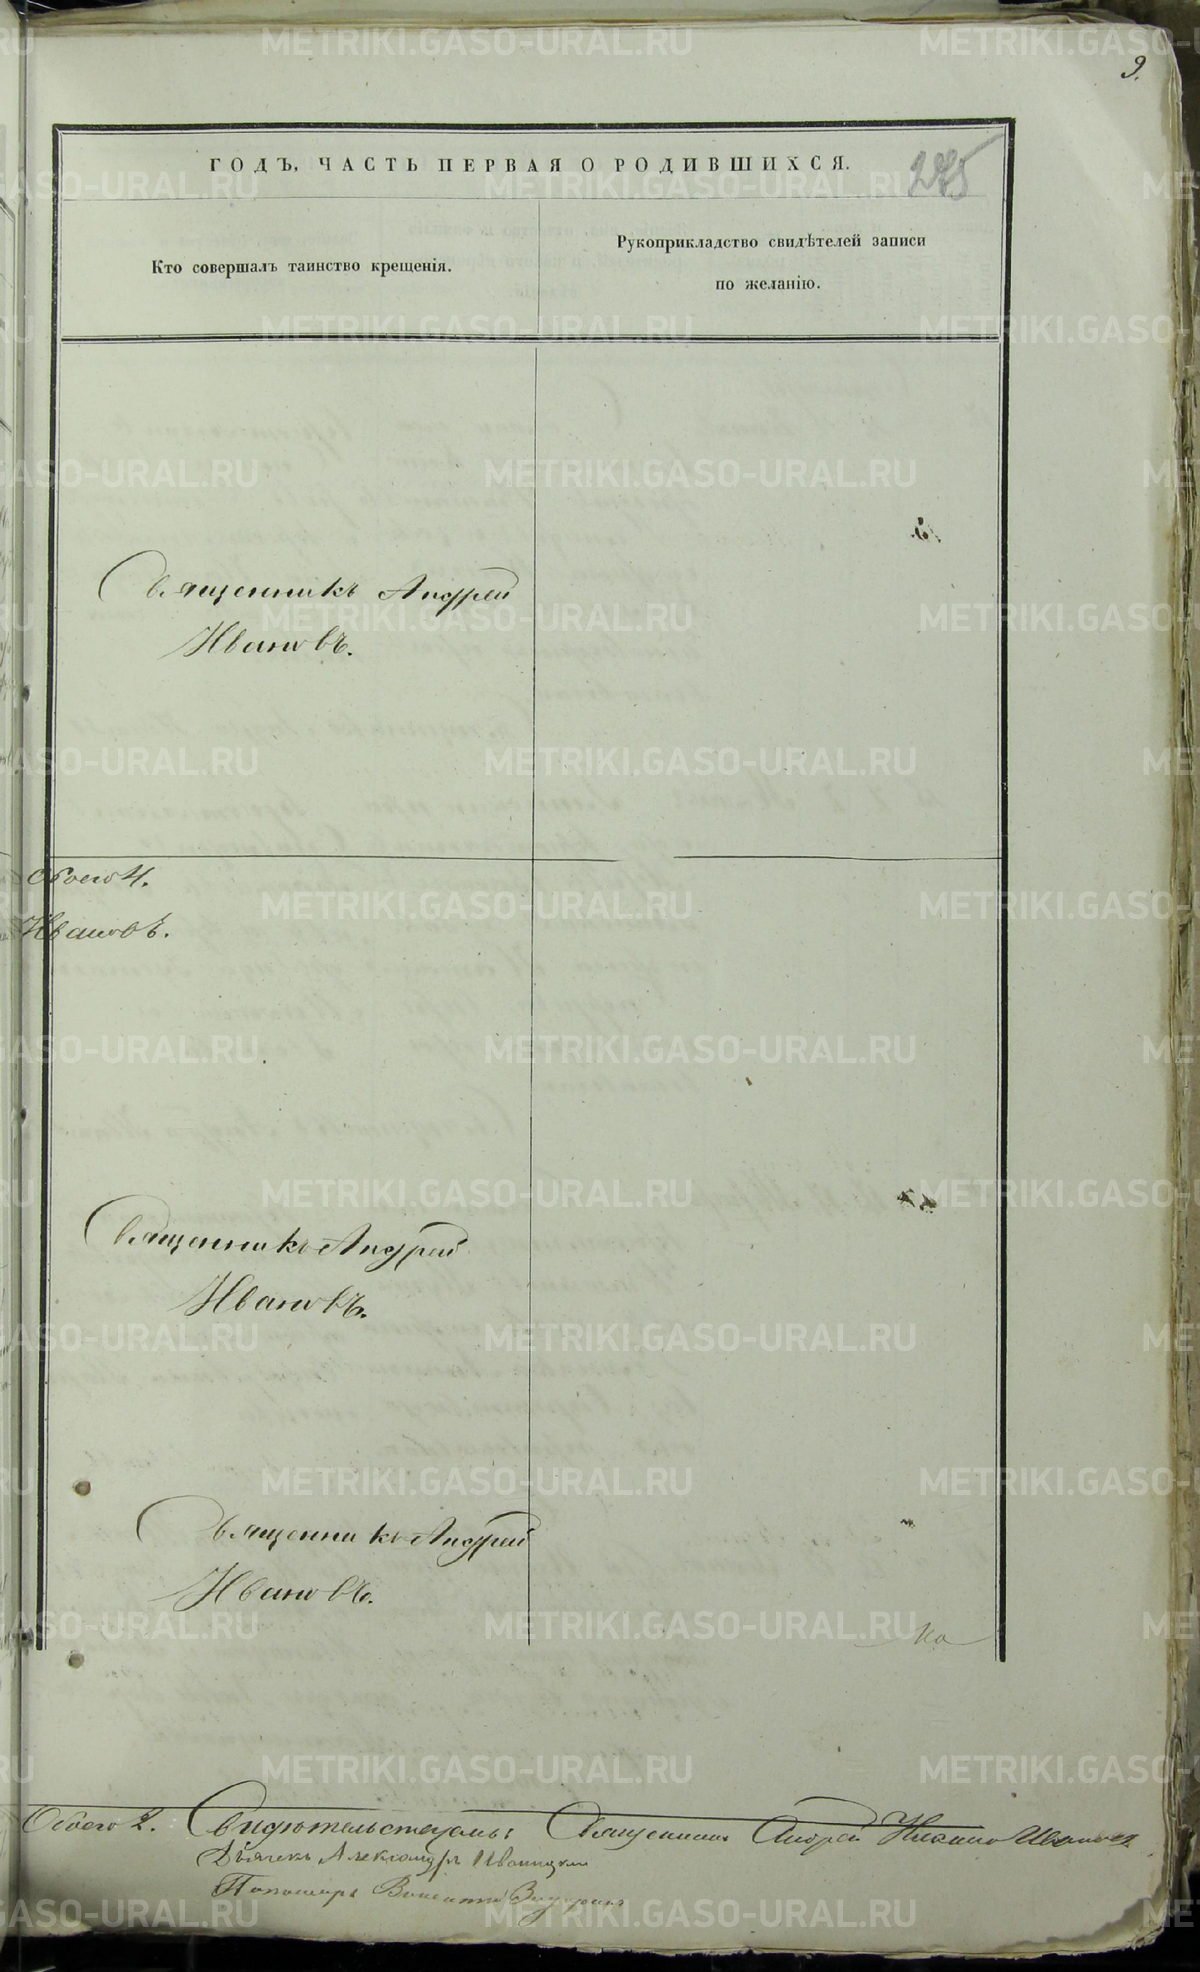 9.
ГОДЪ, ЧАСТЬ ПЕРВАЯ О РОДИВШИХСЯ.
275
Кто совершалъ таинство крещенія.
Рукоприкладство свидѣтелей записи
по желанію.
Священникъ Андрей
Ивановъ.
Обоего 4.
Ивановъ.
Священникъ Андрей
Ивановъ.
Священникъ Андрей
Ивановъ.
Но
Обоего 2. Свидѣтельствуемъ: Священникъ Андрей Ивановъ
Дьячекъ Александръ Иваницкій
Пономарь Викентій
METRIKI.GASO-URAL.RU